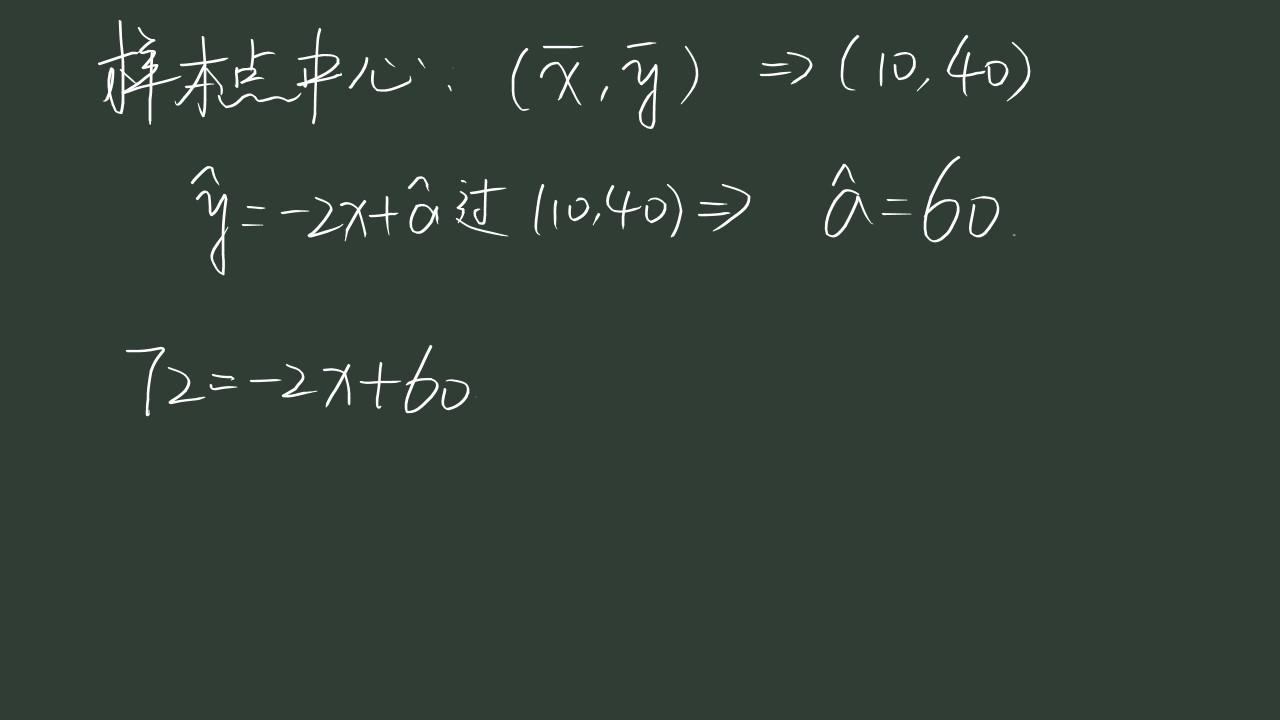 样本点中心: (x̄, ȳ) ⇒ (10, 40)
ŷ = -2x + â 过 (10, 40) ⇒ â = 60.
72 = -2x + 60